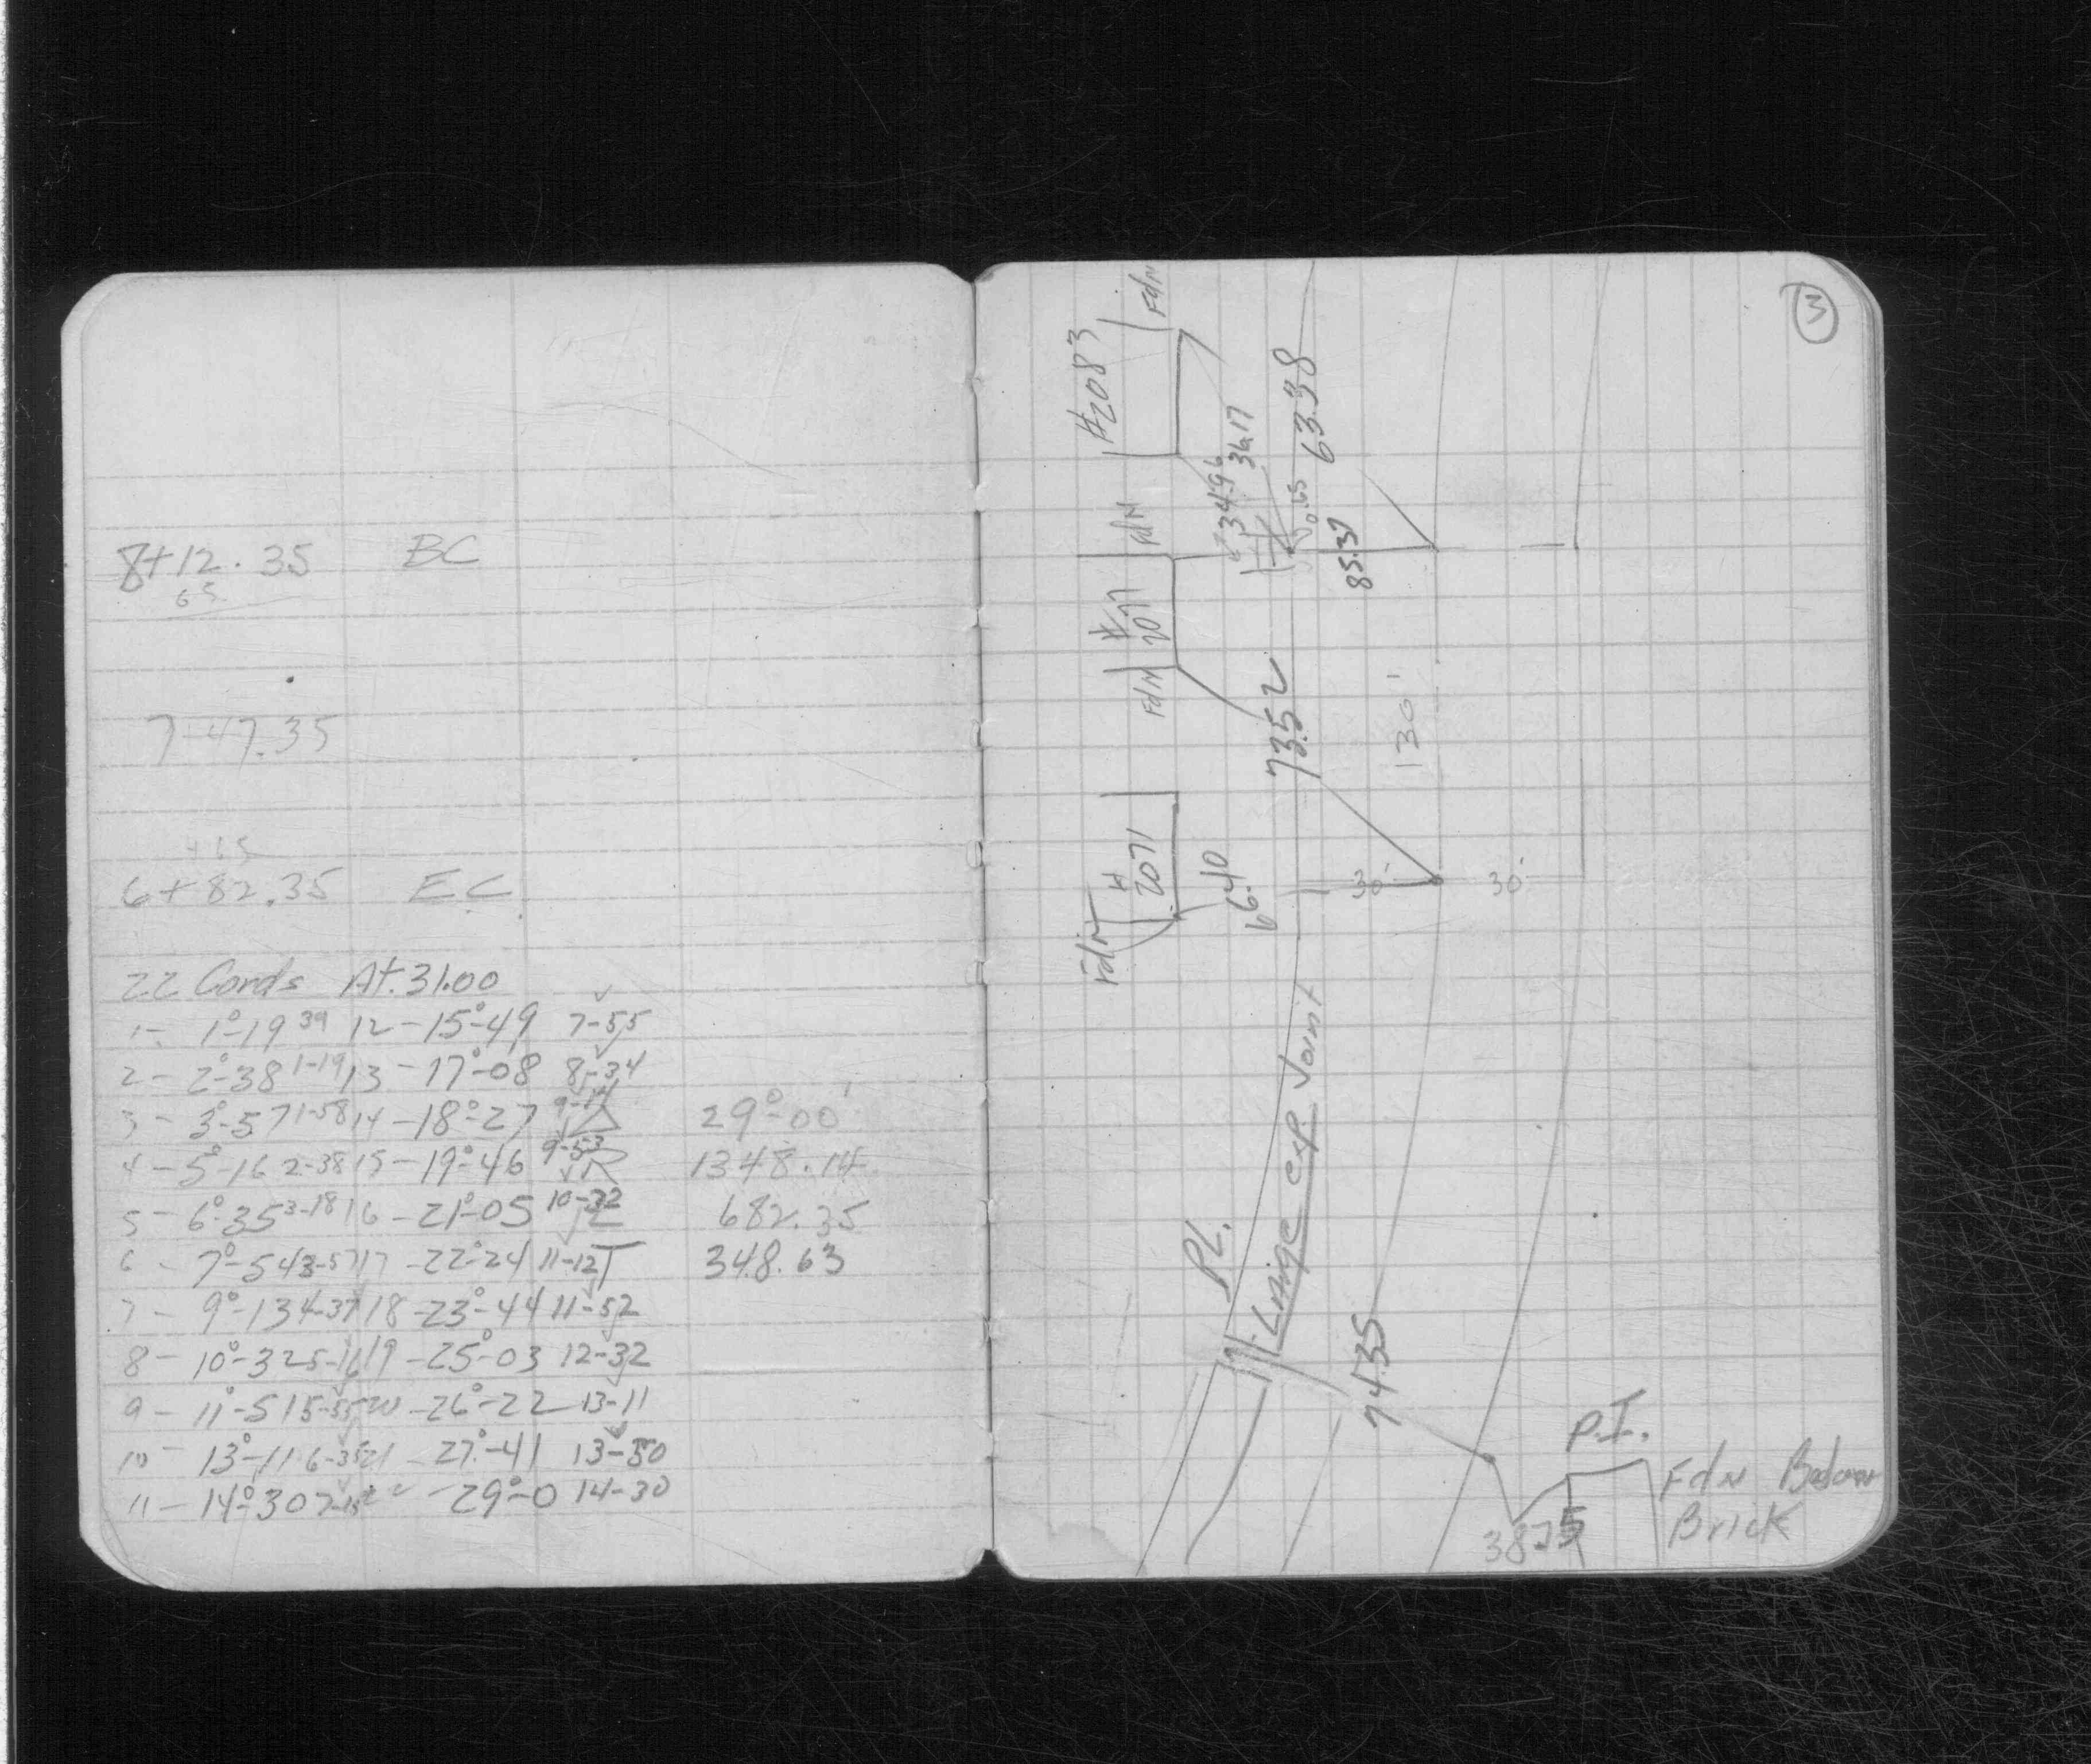 8+12.35 BC
65
7-47.35
6+82.35 EC
22 Cords At 31.00
1- 1°-19 39 12-15°-49 7-55
2- 2°-38 1-19 13-17°-08 8-34
3- 3°-57 1-58 14-18°-27 9-14 △ 29°-00'
4-5°-16 2-38 15-19°-46 9-53 R 1348.14
5- 6°-35 3-18 16-21°-05 10-32 L 682.35
6- 7°-54 3-57 17-22°-24 11-12 T 348.63
7- 9°-13 4-37 18-23°-44 11-52
8- 10°-32 5-16 19-25°-03 12-32
9- 11°-51 5-55 20-26°-22 13-11
10- 13°-11 6-35 21-27°-41 13-50
11-14°-30 7-15 22-29°-0 14-30
3
Fdn
#2083
Fdn
#2077
Fdn
#2071
Fdn
34.96
36.17
0.65
63.38
85.37
73.52
130'
66.40
30'
30'
PL.
Large exp. Joint
74.35
P.I.
38.75
Fdn
Brick